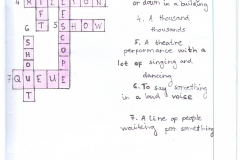 or down in a building
4. A thousand
thousands
5. A theatre
performance with a
lot of singing and
dancing
6. To say something
in a loud voice
7. A line of people
waiteing for something
4 MILLION
5 SHOW
6
SHOUT
7 QUEUE